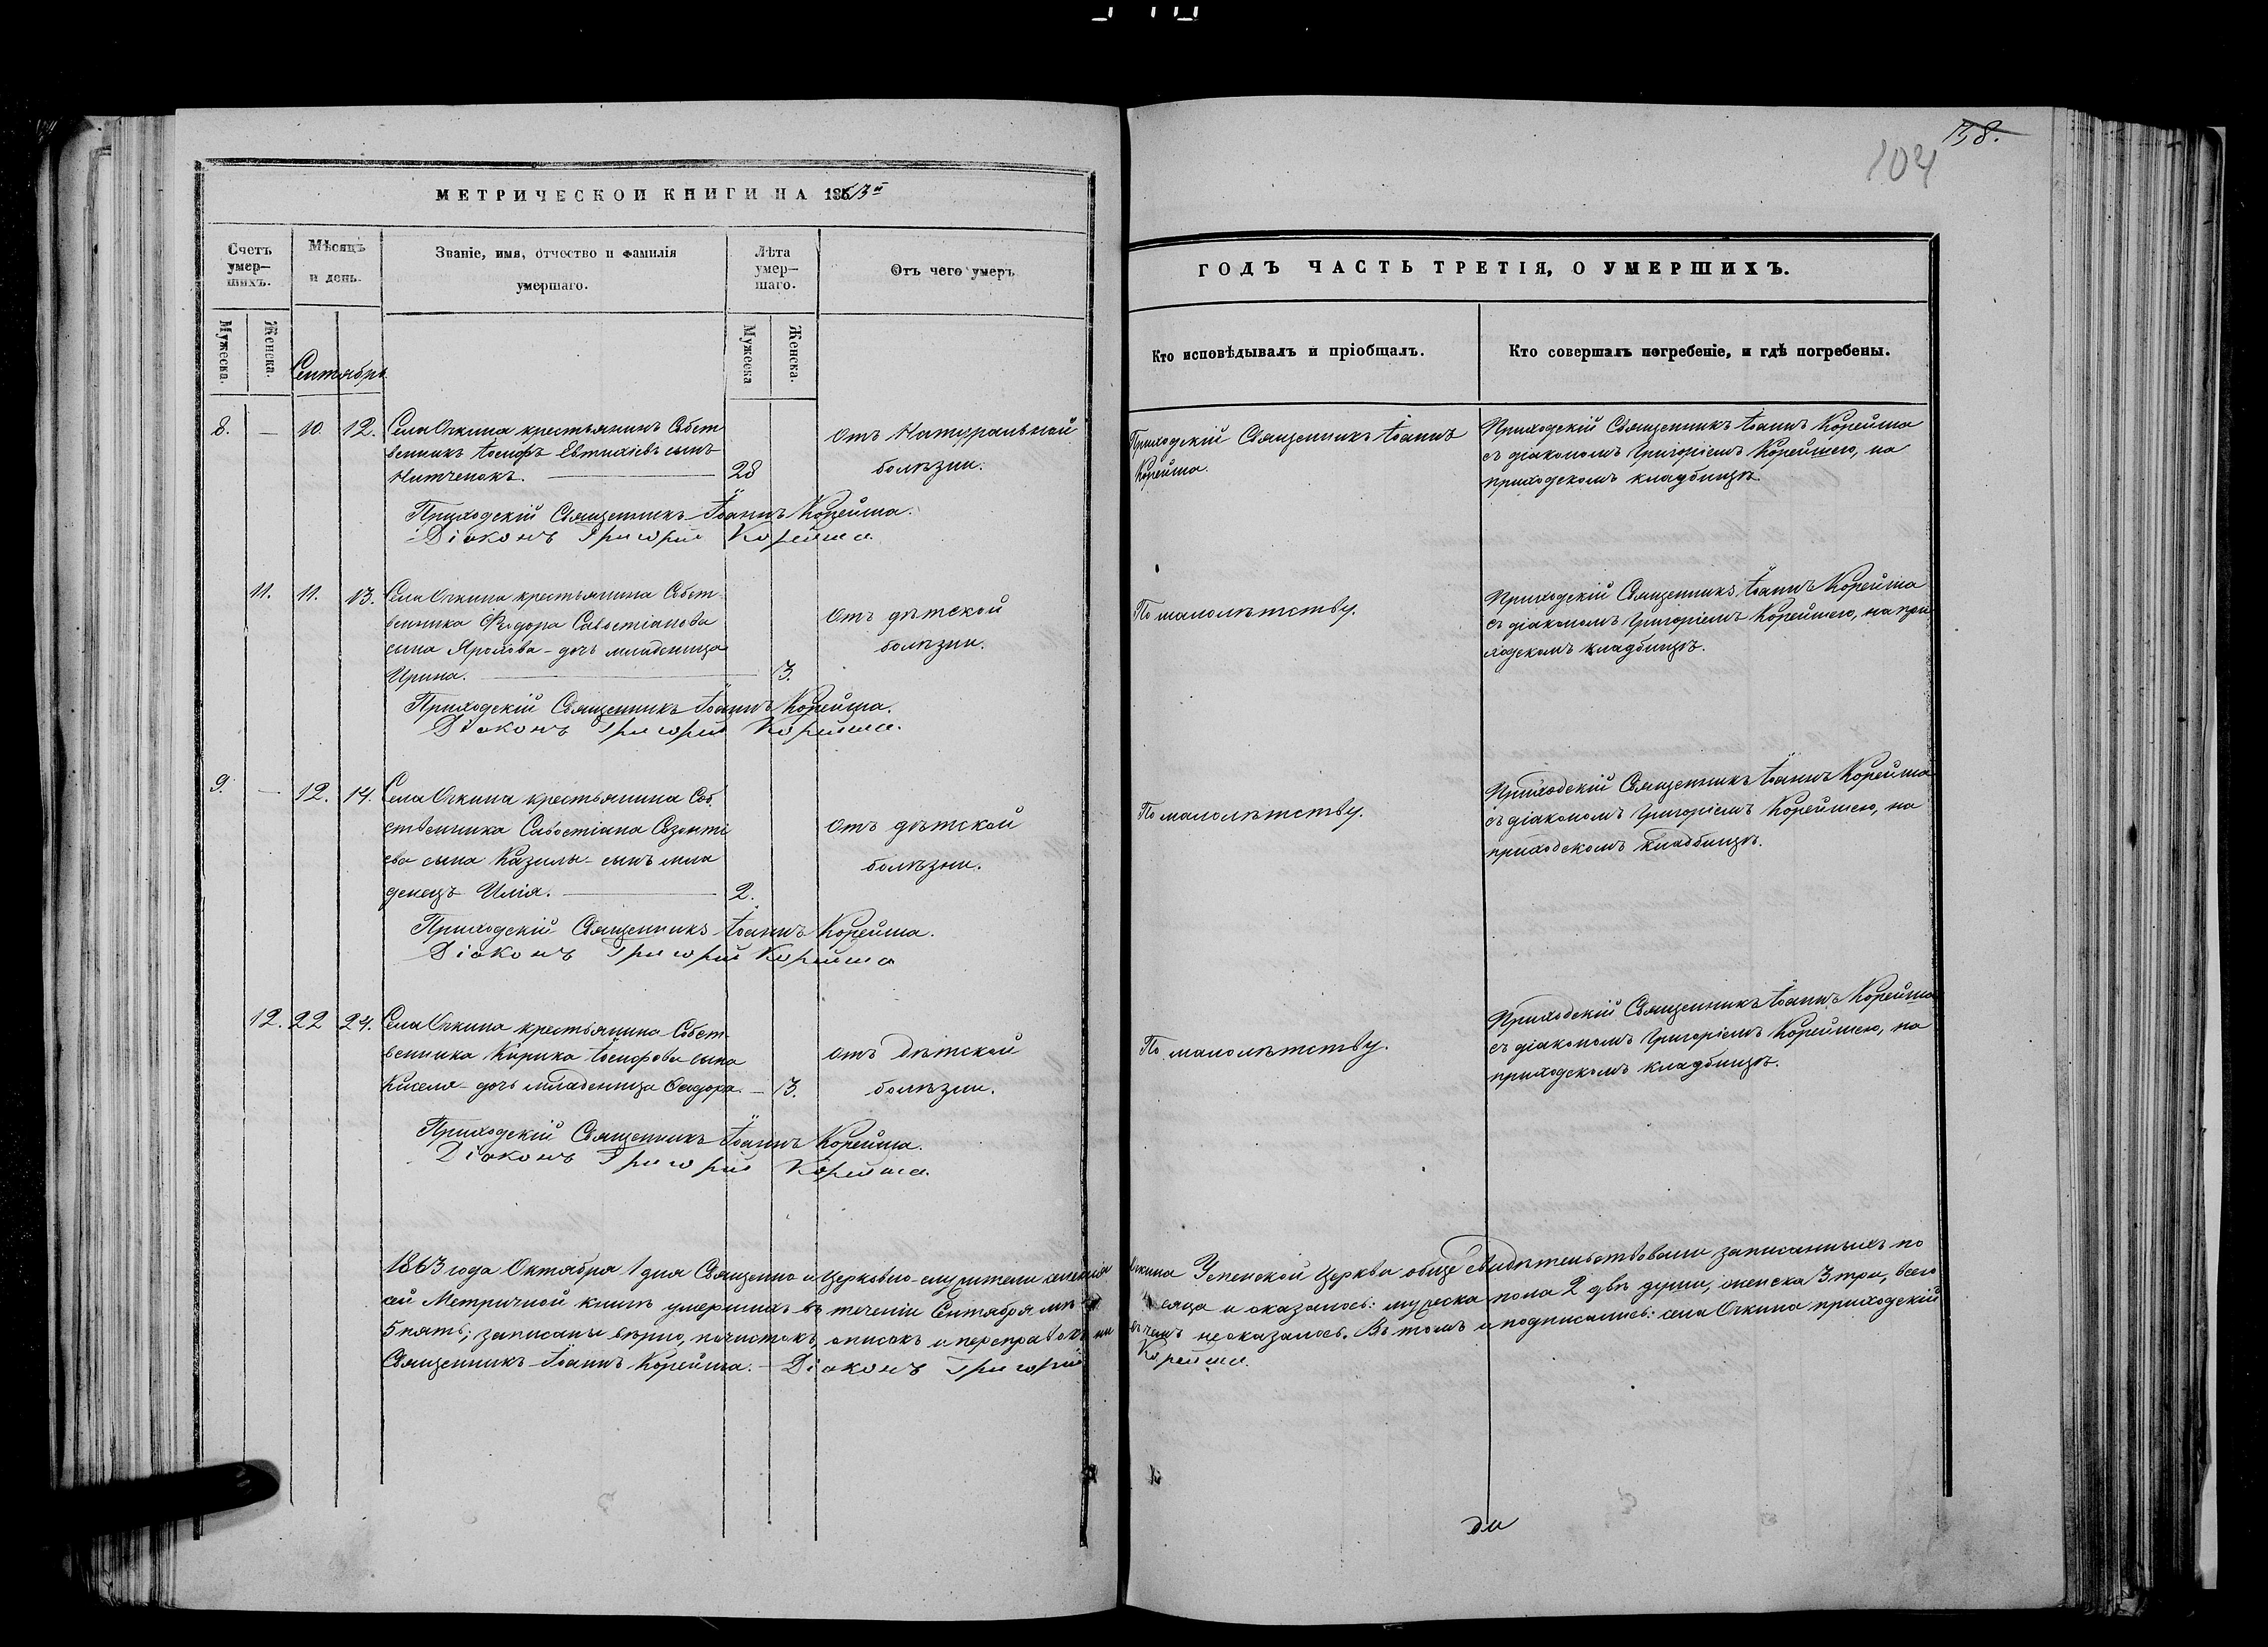 138.
104
МЕТРИЧЕСКОЙ КНИГИ НА 1863й
Счетъ умер-
шихъ.
Мѣсяцъ
и день.
Званіе, имя, отчество и фамилія
умершаго.
Лѣта
умер-
шаго.
Отъ чего умеръ
Мужеска.
Женска.
Сентябрь
Мужеска
Женска.
8. — 10. 12. Села Очкина крестьянинъ Собст
венникъ Іосифъ Евтихіевъ сынъ
Нитченокъ. — 28
отъ Натуральной
болѣзни.
Приходскій Священникъ Іоаннъ Корейша.
Діаконъ Григорій Корейша
11. 11. 13. Села Очкина крестьянина Собст-
венника Ѳедора Савостіанова
сына Яромова - дочь младеница
Ирина. — 3.
отъ дѣтской
болѣзни.
Приходскій Священникъ Іоаннъ Корейша.
Діаконъ Григорій Корейша.
9. — 12. 14. Села Очкина крестьянина Соб-
ственника Савостіана Созонті
ева сына Казилы - сынъ мла
денецъ Илія. — 2.
отъ дѣтской
болѣзни.
Приходскій Священникъ Іоаннъ Корейша.
Діаконъ Григорій Корейша
12. 22 24. Села Очкина крестьянина Собст-
венника Кирика Іосифова сына
Киселя - дочь младеница Ѳеодора. — 3.
отъ дѣтской
болѣзни.
Приходскій Священникъ Іоаннъ Корейша.
Діаконъ Григорій Корейша.
1863 года Октября 1 дня Священно и церковно-служители селенія
сей Метричной книгѣ умершихъ въ теченіи Сентября мѣ
5 пять; записаны вѣрно, почистокъ, описокъ и переправокъ ни
Священникъ Іоаннъ Корейша. - Діаконъ Григорій
ГОДЪ ЧАСТЬ ТРЕТІЯ, О УМЕРШИХЪ.
Кто исповѣдывалъ и пріобщалъ.
Кто совершалъ погребеніе, и гдѣ погребены.
Приходскій Священникъ Іоаннъ
Корейша.
Приходскій Священникъ Іоаннъ Корейша
съ діакономъ Григоріемъ Корейшею, на
приходскомъ кладбищѣ.
По малолѣтству.
Приходскій Священникъ Іоаннъ Корейша
съ діакономъ Григоріемъ Корейшею, на при
ходскомъ кладбищѣ.
По малолѣтству.
Приходскій Священникъ Іоаннъ Корейша
съ діакономъ Григоріемъ Корейшею, на
приходскомъ кладбищѣ.
По малолѣтству.
Приходскій Священникъ Іоаннъ Корейша
съ діакономъ Григоріемъ Корейшею, на
приходскомъ кладбищѣ.
Очкина Успенской Церкви обще свидѣтельствовали записанныхъ по
сяца и оказалось: мужеска пола 2 двѣ души, женска 3 три, всего
въ чемъ неоказалось. Въ томъ и подписались: села Очкина приходскій
Корейша.